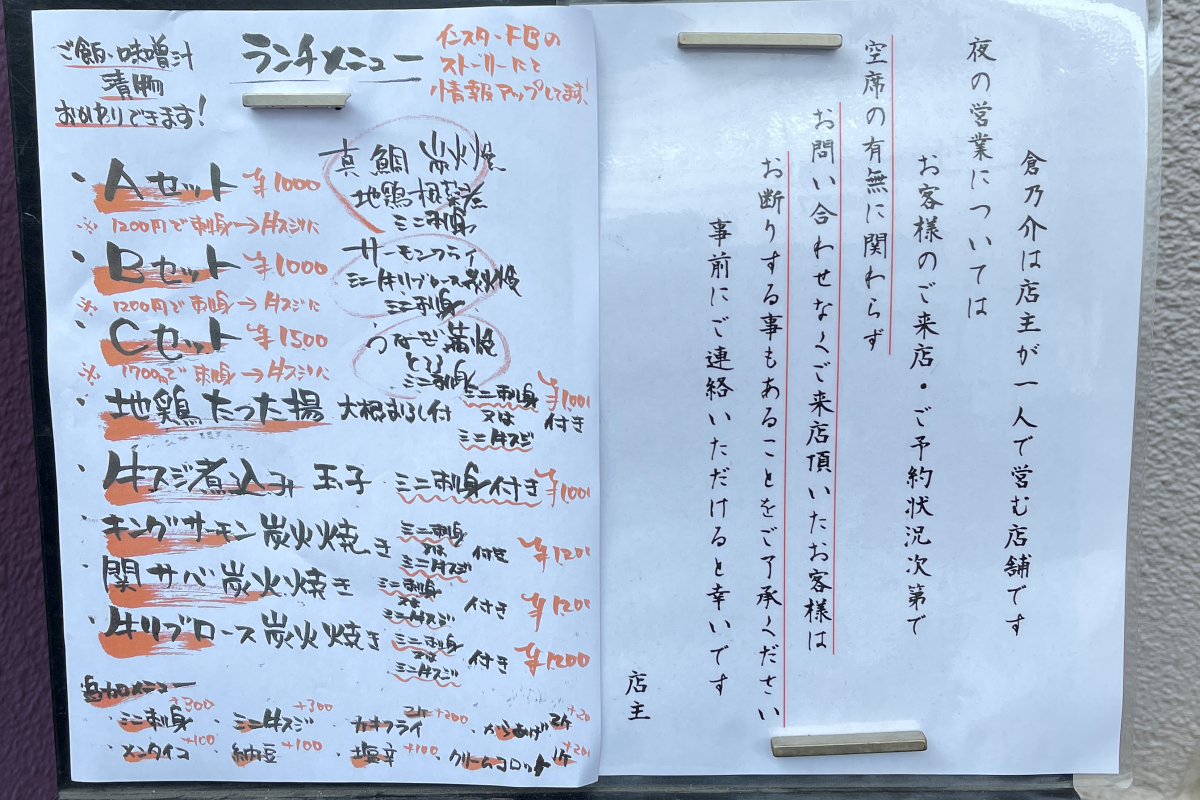 ご飯・味噌汁
漬物
おかわりできます!
ランチメニュー
インスタ・FBの
ストーリーにて
情報アップしてます!
・Aセット ¥1000
真鯛炭火焼
地鶏根菜煮
ミニ刺身
※1200円で刺身→牛スジに
・Bセット ¥1000
サーモンフライ
ミニ牛リブロース炭火焼
ミニ刺身
※1200円で刺身→牛スジに
・Cセット ¥1500
うなぎ蒲焼
とろろ
ミニ刺身
※1700円で刺身→牛スジに
・地鶏たつた揚 大根おろし付 ミニ刺身又はミニ牛スジ付き ¥100
・牛スジ煮込み 玉子 ミニ刺身付き ¥100
・キングサーモン炭火焼き ミニ刺身又はミニ牛スジ付き ¥120
・関サバ炭火焼き ミニ刺身又はミニ牛スジ付き ¥120
・牛リブロース炭火焼き ミニ刺身又はミニ牛スジ付き ¥1200
追加メニュー
・ミニ刺身+300 ・ミニ牛スジ+300 ・カキフライ2ケ+200 ・からあげ2ケ+20
・メンタイコ+100 ・納豆+100 ・塩辛+100 ・クリームコロッケ1ケ+20
倉乃介は店主が一人で営む店舗です
夜の営業については
お客様のご来店・ご予約状況次第で
空席の有無に関わらず
お問い合わせなくご来店頂いたお客様は
お断りする事もあることをご了承ください
事前にご連絡いただけると幸いです
店主